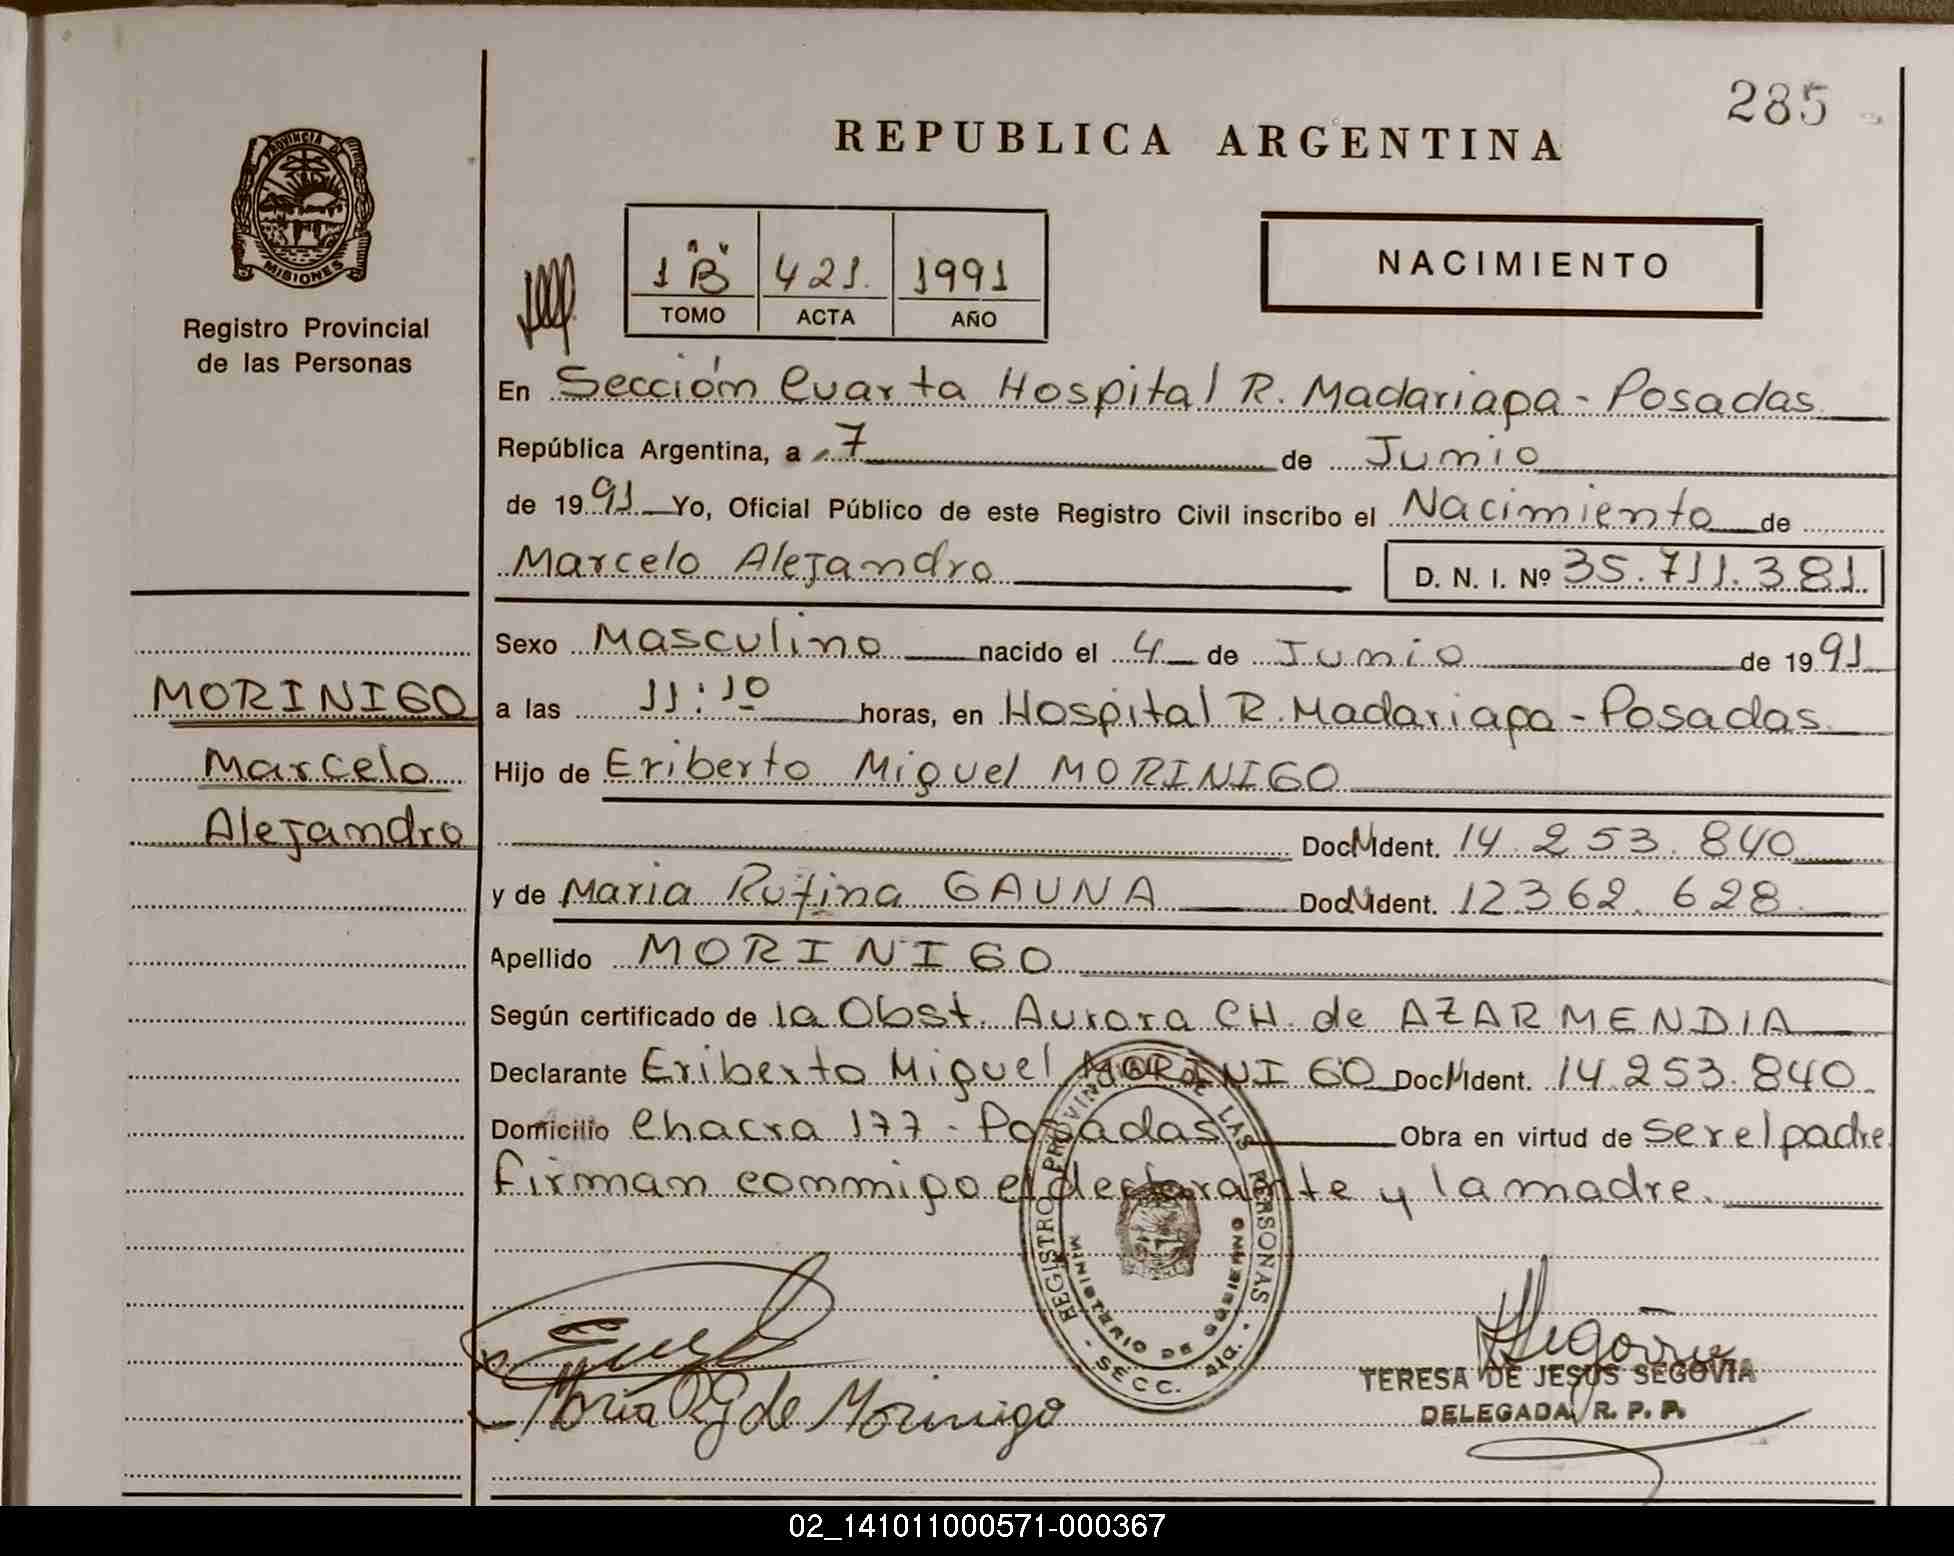 285
REPUBLICA ARGENTINA
PROVINCIA DE
MISIONES
Registro Provincial
de las Personas
1 "B" 421. 1991
TOMO ACTA AÑO
NACIMIENTO
En Sección Cuarta Hospital R. Madariaga - Posadas
República Argentina, a 7 de Junio
de 1991 Yo, Oficial Público de este Registro Civil inscribo el Nacimiento de
Marcelo Alejandro D. N. I. Nº 35.711.381.
Sexo Masculino nacido el 4 de Junio de 1991
MORINIGO
Marcelo
Alejandro
a las 11:10 horas, en Hospital R. Madariaga - Posadas.
Hijo de Eriberto Miguel MORINIGO
Doc. Ident. 14.253.840
y de Maria Rufina GAUNA Doc. Ident. 12.362.628
Apellido MORINIGO
Según certificado de la Obst. Aurora CH. de AZARMENDIA
Declarante Eriberto Miguel MORINIGO Doc. Ident. 14.253.840
Domicilio Chacra 177 - Posadas Obra en virtud de ser el padre
firman conmigo el declarante y la madre.
REGISTRO PROVINCIAL DE LAS PERSONAS
MINISTERIO DE GOBIERNO
- SECC. 4ta. -
Maria R G de Morinigo
Segovia
TERESA DE JESUS SEGOVIA
DELEGADA R. P. P.
02_141011000571-000367